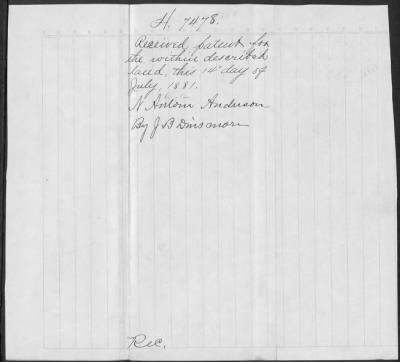 H. 7478.
Received patent for
the within described
land, this 14" day of
July, 1881.
N Antoin Anderson
By J B Dinsmore
Rec.